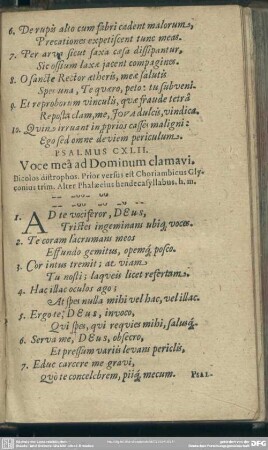 6. De rupis alto cum fabri cadent malorum,
Precationes expetiscent tunc meas.
7. Per arva sicut saxa cæsa dissipantur,
Sic ossium laxa jacent compagines.
8. O sancte Rector ætheris, meæ salutis
Spes una, Te quæro, peto: tu subveni.
9. Et reproborum vinculis, quæ fraude tetrâ
Reposta clam, me, Jova dulcis, vindica.
10. Quin irruant in pprios casses maligni:
Ego sed omne deviem periculum.
PSALMUS CXLII.
Voce meâ ad Dominum clamavi.
Dicolos distrophos. Prior versus est Choriambicus Gly-
conius trim. Alter Phalæcius hendecasyllabus. h. m.
1. AD te vociferor, DEus,
Tristes ingeminans ubiq; voces.
2. Te coram lacrumans meos
Effundo gemitus, opemq; posco.
3. Cor intus tremit; at viam
Tu nosti; laqueis licet refertam.
4. Hac illac oculos ago;
At spes nulla mihi vel hac, vel illac.
5. Ergo te, DEus, invoco,
Qui spes, qui requies mihi, salusq;.
6. Serva me, DEus, obsecro,
Et pressum variis leva periclis,
7. Educ carcere me gravi,
Quò te concelebrem, piiq; mecum.
PSAL-